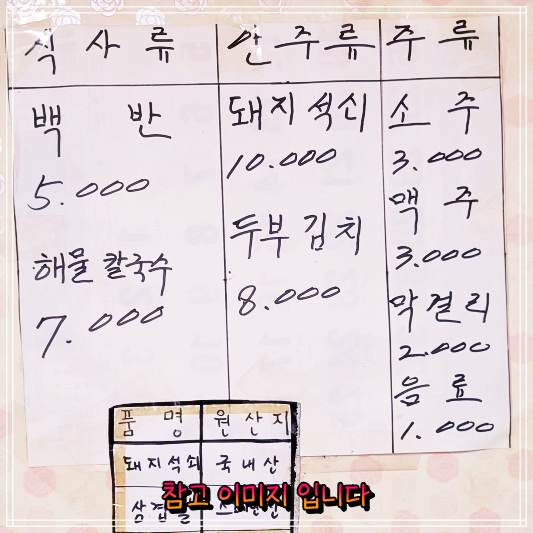 식사류 안주류 주류
백반
5.000
해물칼국수
7.000
돼지석쇠
10.000
두부김치
8.000
소주
3.000
맥주
3.000
막걸리
2.000
음료
1.000
품명 원산지
돼지석쇠 국내산
삼겹살
참고 이미지 입니다